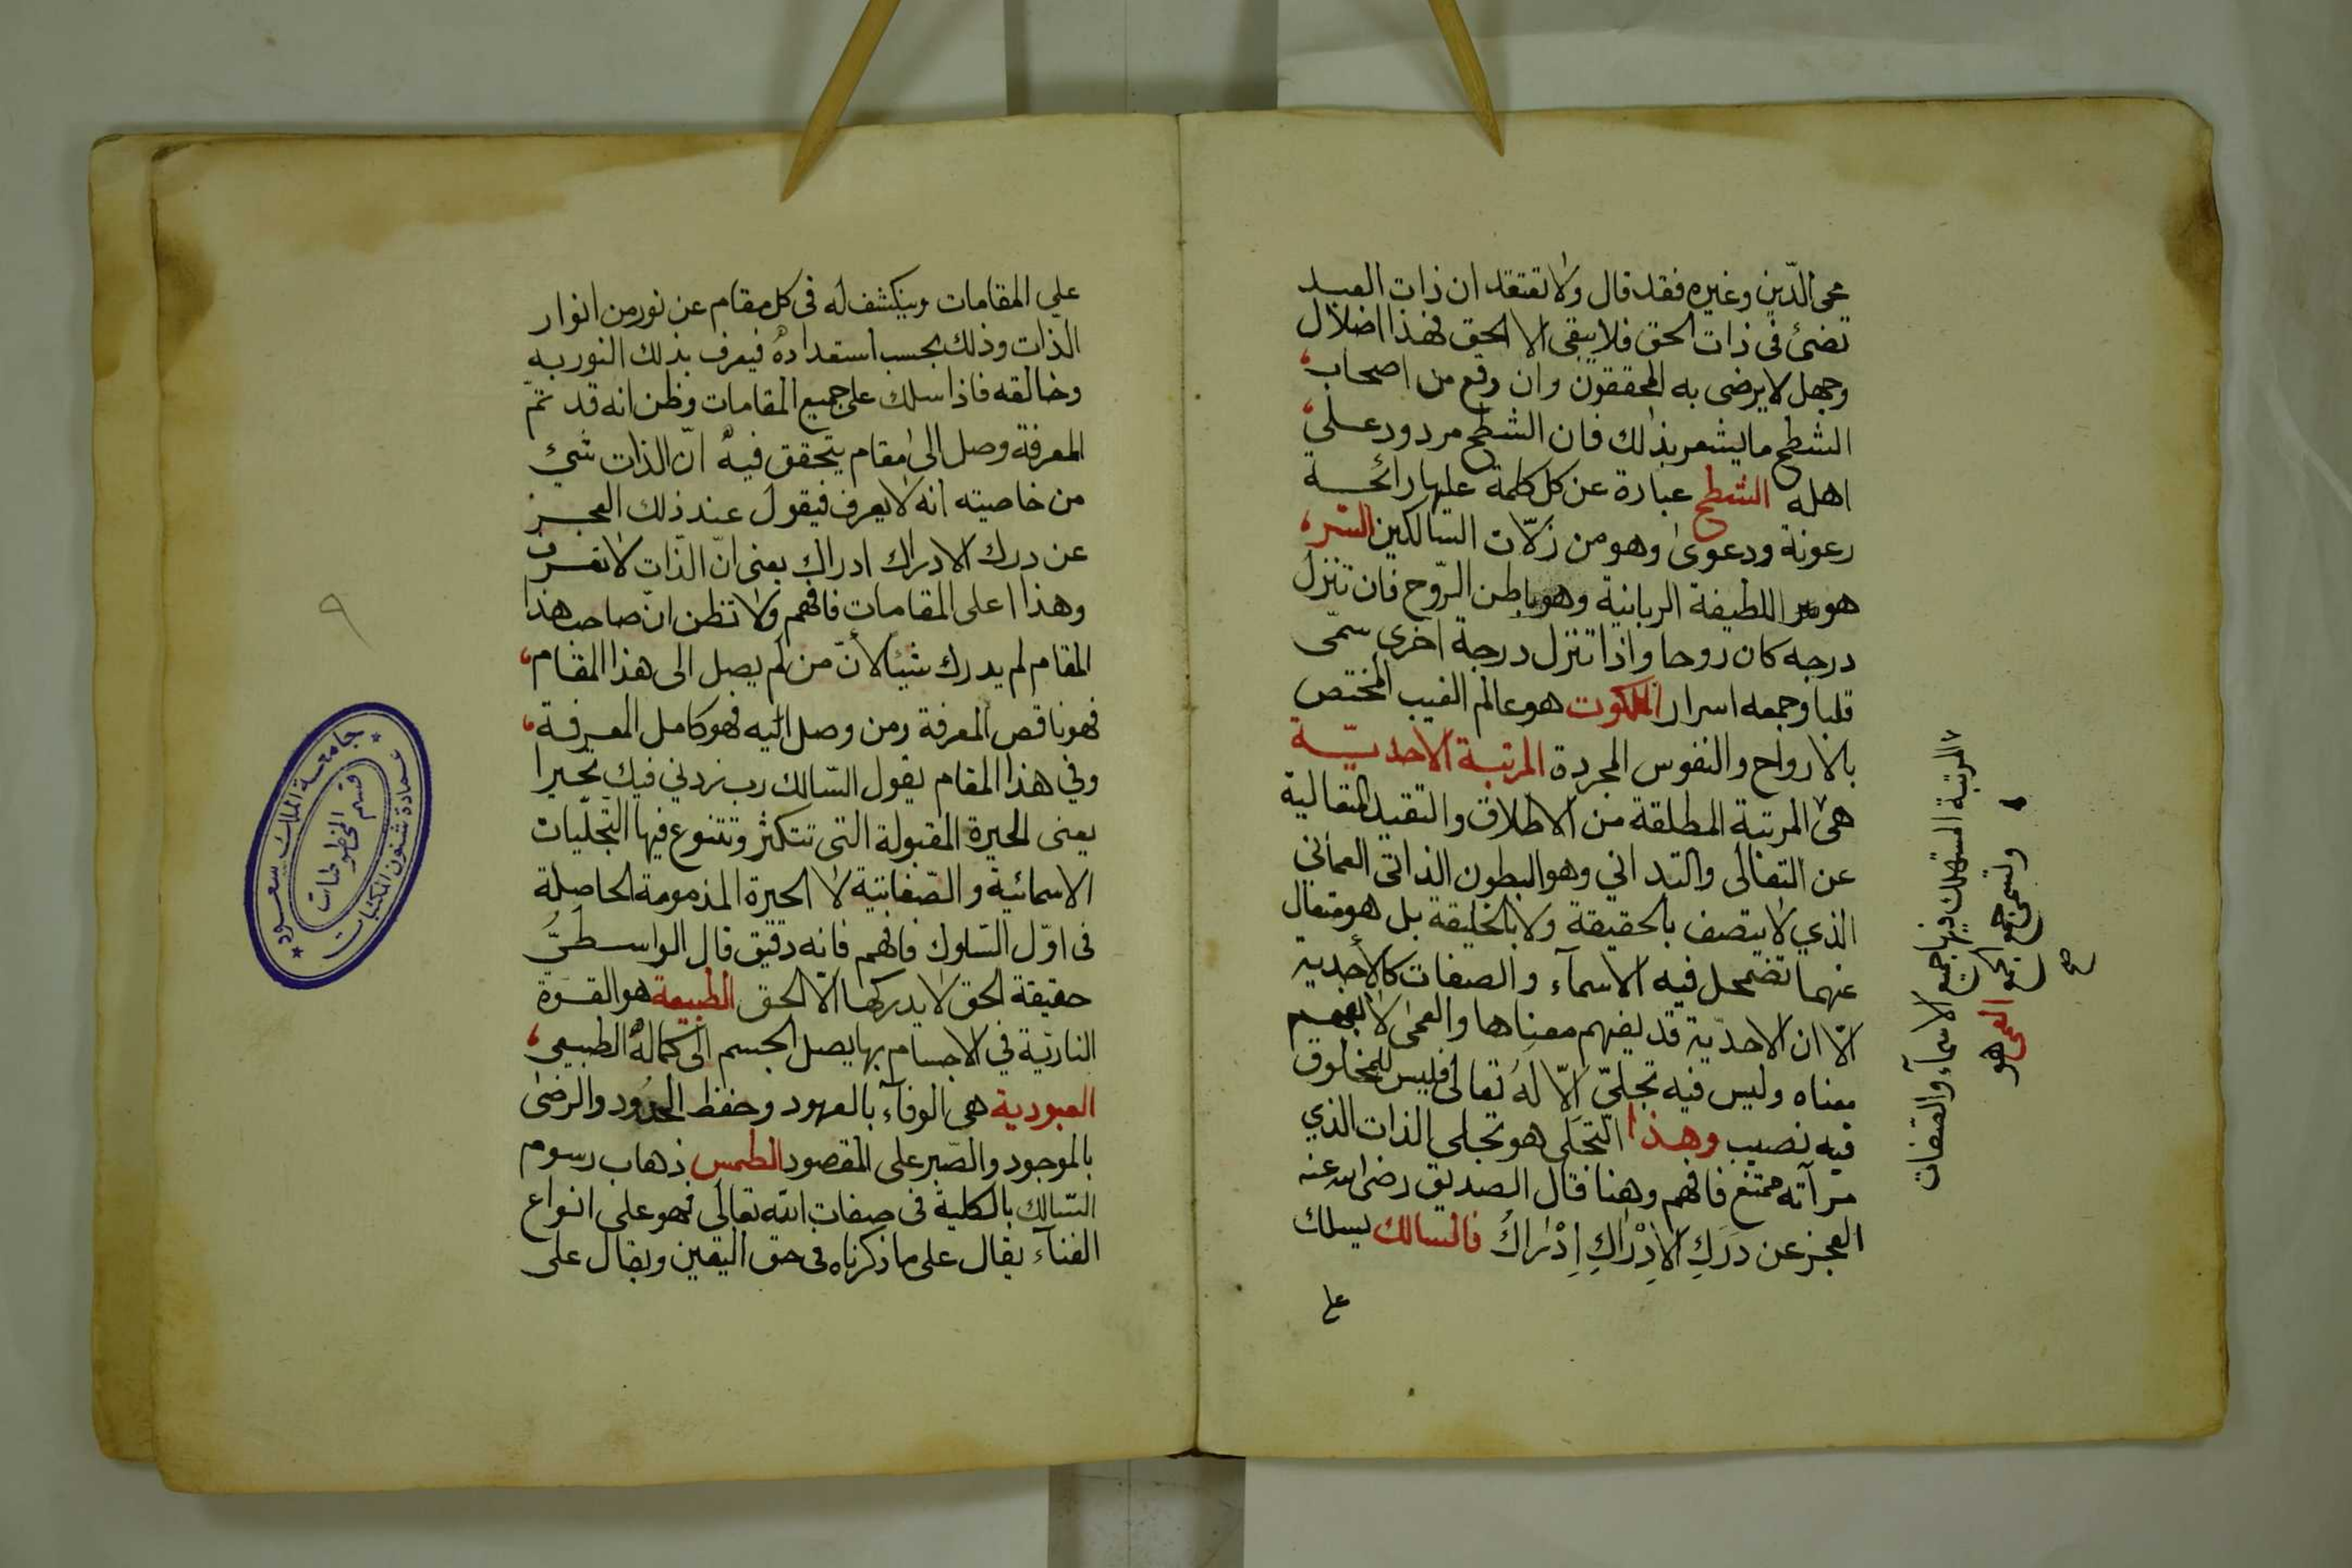 محي الدّين وغيره فقد قال ولا تعتقد ان ذات العبد
تضئ فى ذات الحق فلا يبقى الا الحق فهذا اضلال
وجهل لا يرضى به المحققون وان وقع من اصحاب
الشطح ما يشعر بذلك فان الشطح مردود علي
اهله الشطح عبارة عن كل كلمة عليها رائحة
رعونة ودعوى وهو من زلّات السّالكين السّر
هو اللطيفة الربانية وهو باطن الرّوح فان تنزل
درجه كان روحا واذا تنزل درجة اخرى سمّى
قلبا وجمعه اسرار الملكوت هو عالم الغيب المختص
بالارواح والنفوس المجردة المرتبة الاحديّة
هى المرتبة المطلقة من الاطلاق والتقيد المتعالية
عن التعالى والتدانى وهو البطون الذاتى العمائى
الذي لا يتصف بالحقيقة ولا بالخليقة بل هو متعال
عنهما تضمحل فيه الاسمآء والصفات كالأحدية
الّا ان الاحديّة قد يفهم معناها والعمى لا يفهم
معناه وليس فيه تجلىّ الّا لهُ تعالى فليس للمخلوق
فيه نصيب وهذا التّجلى هو تجلى الذات الذي
مرآته ممتنع فافهم وهنا قال الصديق رضى الله عنه
العجز عن دَرَكِ الاِدْرَاكِ اِدْرَاكُ فالسالك يسلك
على
المرتبة المستهلك فيها جميع الاسمآء والصفات
وتسمى جمع الجمع العمى هو
صح
علي المقامات وينكشف له فى كل مقام عن نور من انوار
الذات وذلك بحسب استعداده فيعرف بذلك النور به
وخالقه فاذا سلك على جميع المقامات وظن انه قد تمّ
المعرفة وصل الى مقام يتحقق فيه انّ الذات شئ
من خاصيته انه لا يعرف فيقول عند ذلك العجز
عن درك الادراك ادراك يعنى انّ الذّات لا تعرف
وهذا اعلى المقامات فافهم ولا تظن انّ صاحب هذا
المقام لم يدرك شيئا لأنّ من لم يصل الى هذا المقام
فهو ناقص المعرفة ومن وصل اليه فهو كامل المعرفة
وفي هذا المقام يقول السّالك رب زدني فيك تحيرا
يعنى الحيرة المقبولة التى تتكثر وتتنوع فيها التجلّيات
الاسمائية والصّفاتية لا الحيرة المذمومة الحاصلة
فى اوّل السّلوك فافهم فانه دقيق قال الواسطىُّ
حقيقة الحق لا يدركها الّا الحق الطبيعة هو القوّة
الناريّة في الاجسام بها يصل الجسم الى كماله الطبيعي
العبودية هى الوفآء بالعهود وحفظ الحدود والرضى
بالموجود والصّبر على المقصود الطمس ذهاب رسوم
السّالك بالكلية فى صفات الله تعالى فهو على انواع
الفنآء يقال على ما ذكرناه فى حق اليقين ويقال على
٩
جامعة الملك سعود
عمادة شئون المكتبات
قسم المخطوطات